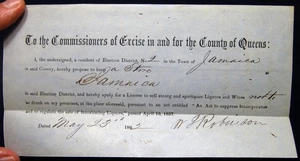 To the Commissioners of Excise in and for the County of Queens:
I, the undersigned, a resident of Election District, No 2 in the Town of Jamaica
in said County, hereby propose to keep a Store
Jamaica
in said Election District, and hereby apply for a License to sell strong and spirituous Liquors and Wines not to
be drank on my premises, at the place aforesaid, pursuant to an act entitled "An Act to suppress Intemperance
and to regulate the sale of Intoxicating Liquors," passed April 16, 1857.
Dated May 23d 186